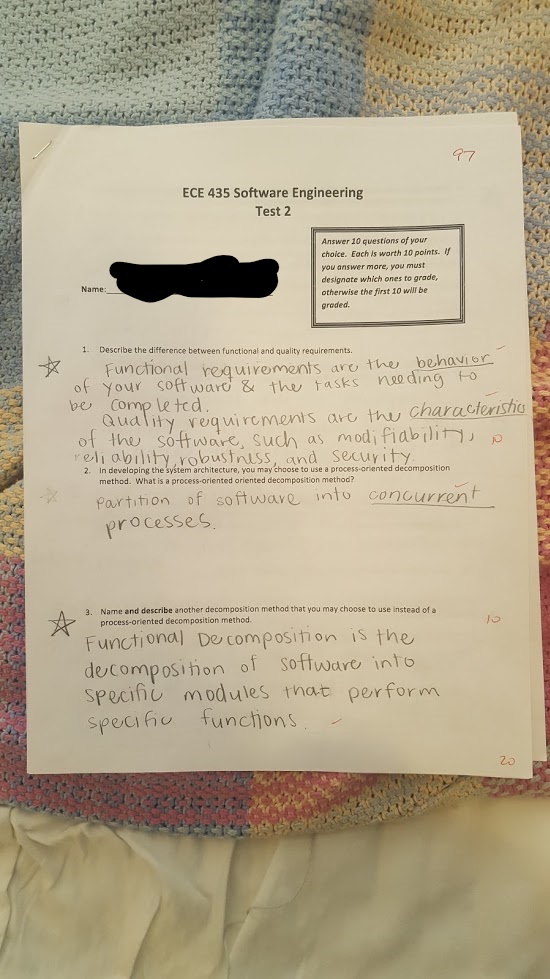 97
ECE 435 Software Engineering
Test 2
Answer 10 questions of your
choice. Each is worth 10 points. If
you answer more, you must
designate which ones to grade,
otherwise the first 10 will be
graded.
Name:
1. Describe the difference between functional and quality requirements.
Functional requirements are the behavior
of your software & the tasks needing to
be completed.
Quality requirements are the characteristics
of the software, such as modifiability,
10
reliability, robustness, and security.
2. In developing the system architecture, you may choose to use a process-oriented decomposition
method. What is a process-oriented oriented decomposition method?
Partition of software into concurrent
processes.
3. Name and describe another decomposition method that you may choose to use instead of a
process-oriented decomposition method.
10
Functional Decomposition is the
decomposition of software into
specific modules that perform
specific functions.
20